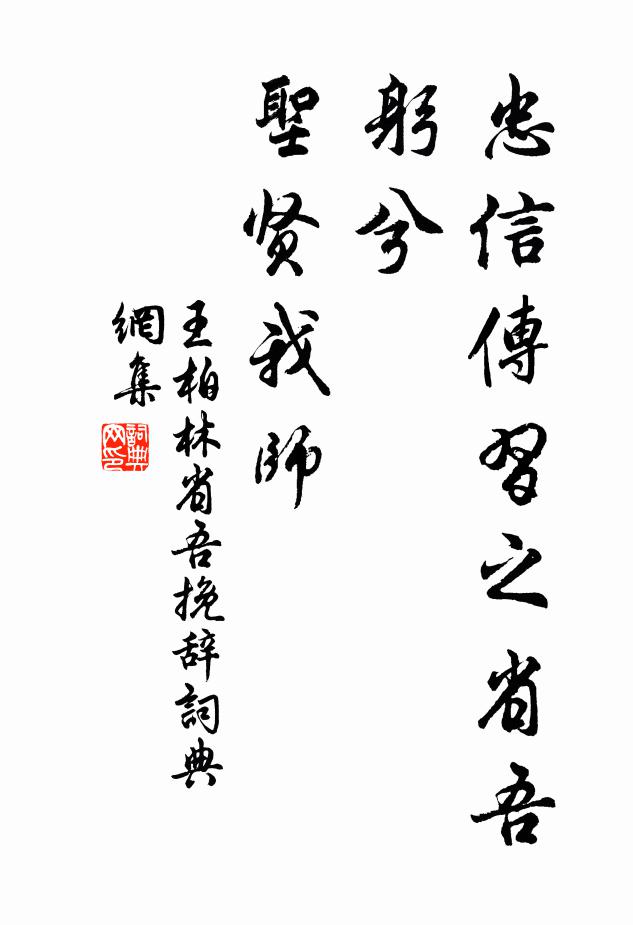 忠信傳習之省吾
躬兮
聖贤我師
王柏林省吾挽辞詞典
網集
詞典
网印